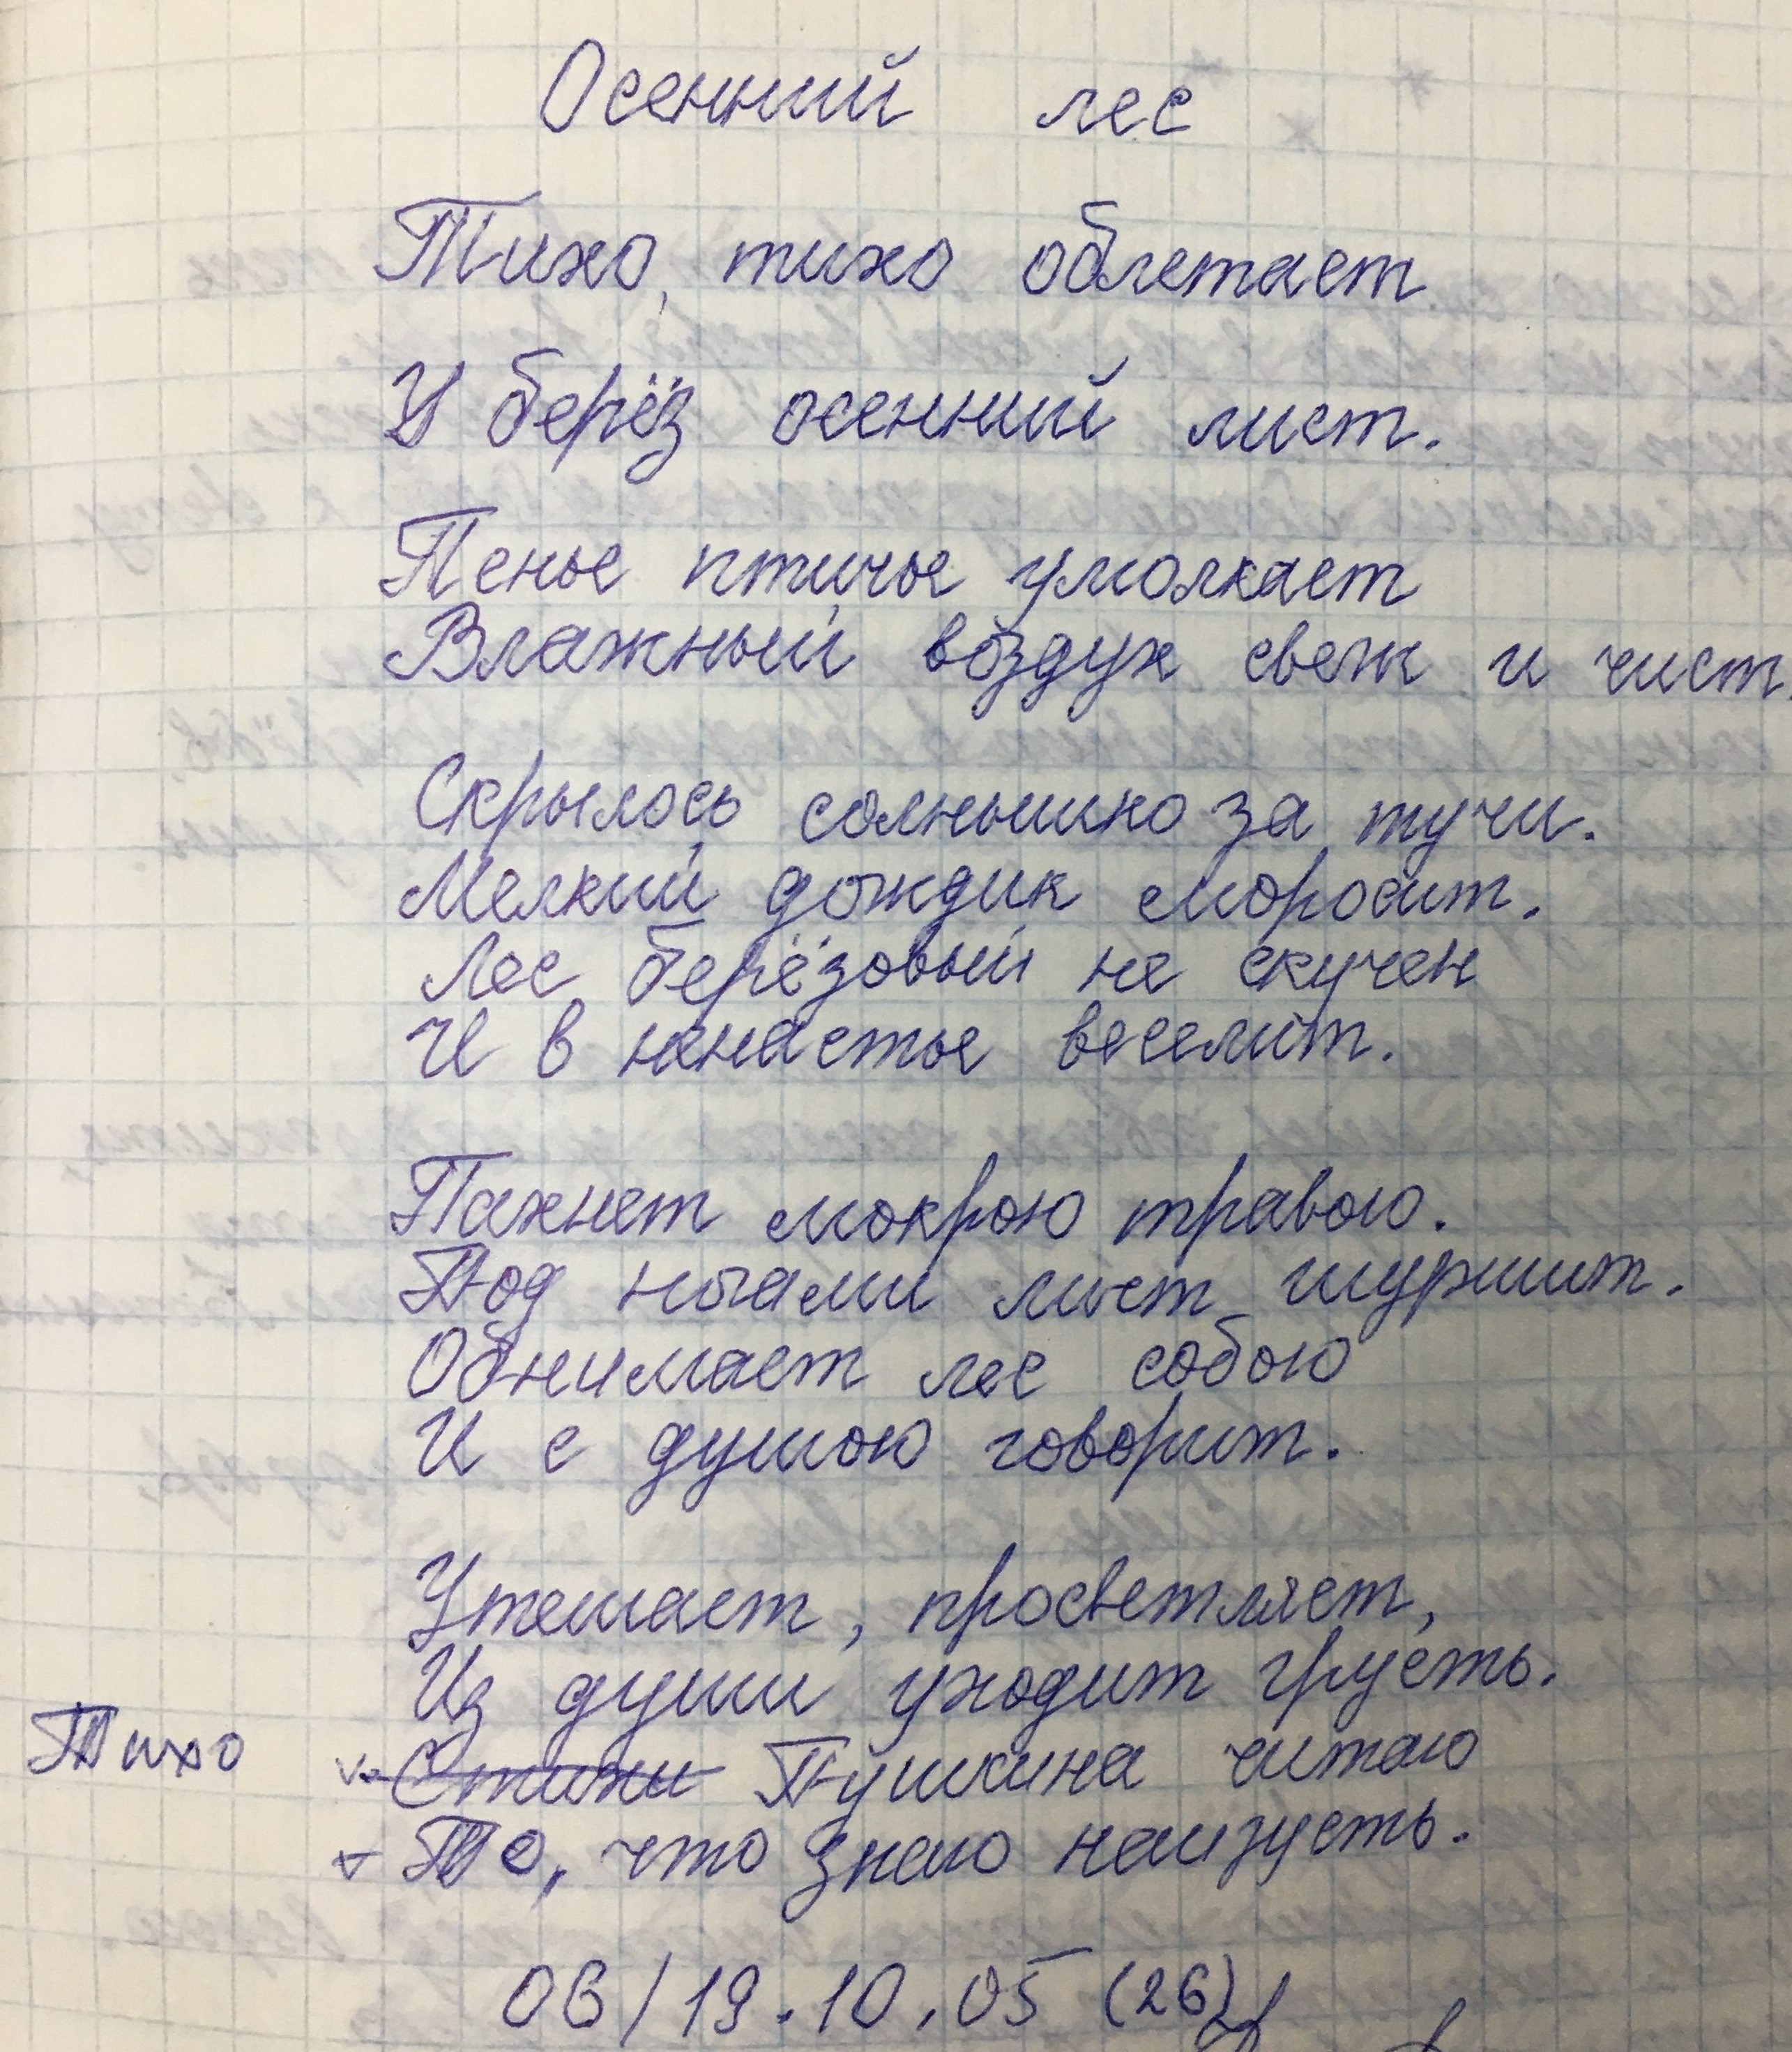 Осенний лес
Тихо, тихо облетает
У берёз осенний лист.
Пенье птичье умолкает
Влажный воздух свеж и чист.
Скрылось солнышко за тучи.
Мелкий дождик моросит.
Лес берёзовый не скучен
И в ненастье веселит.
Пахнет мокрою травою.
Под ногами лист шуршит.
Обнимает лес собою
И с душою говорит.
Утешает, просветляет,
Из души уходит грусть.
Тихо Стихи Пушкина читаю
То, что знаю наизусть.
06/19.10.05 (26)